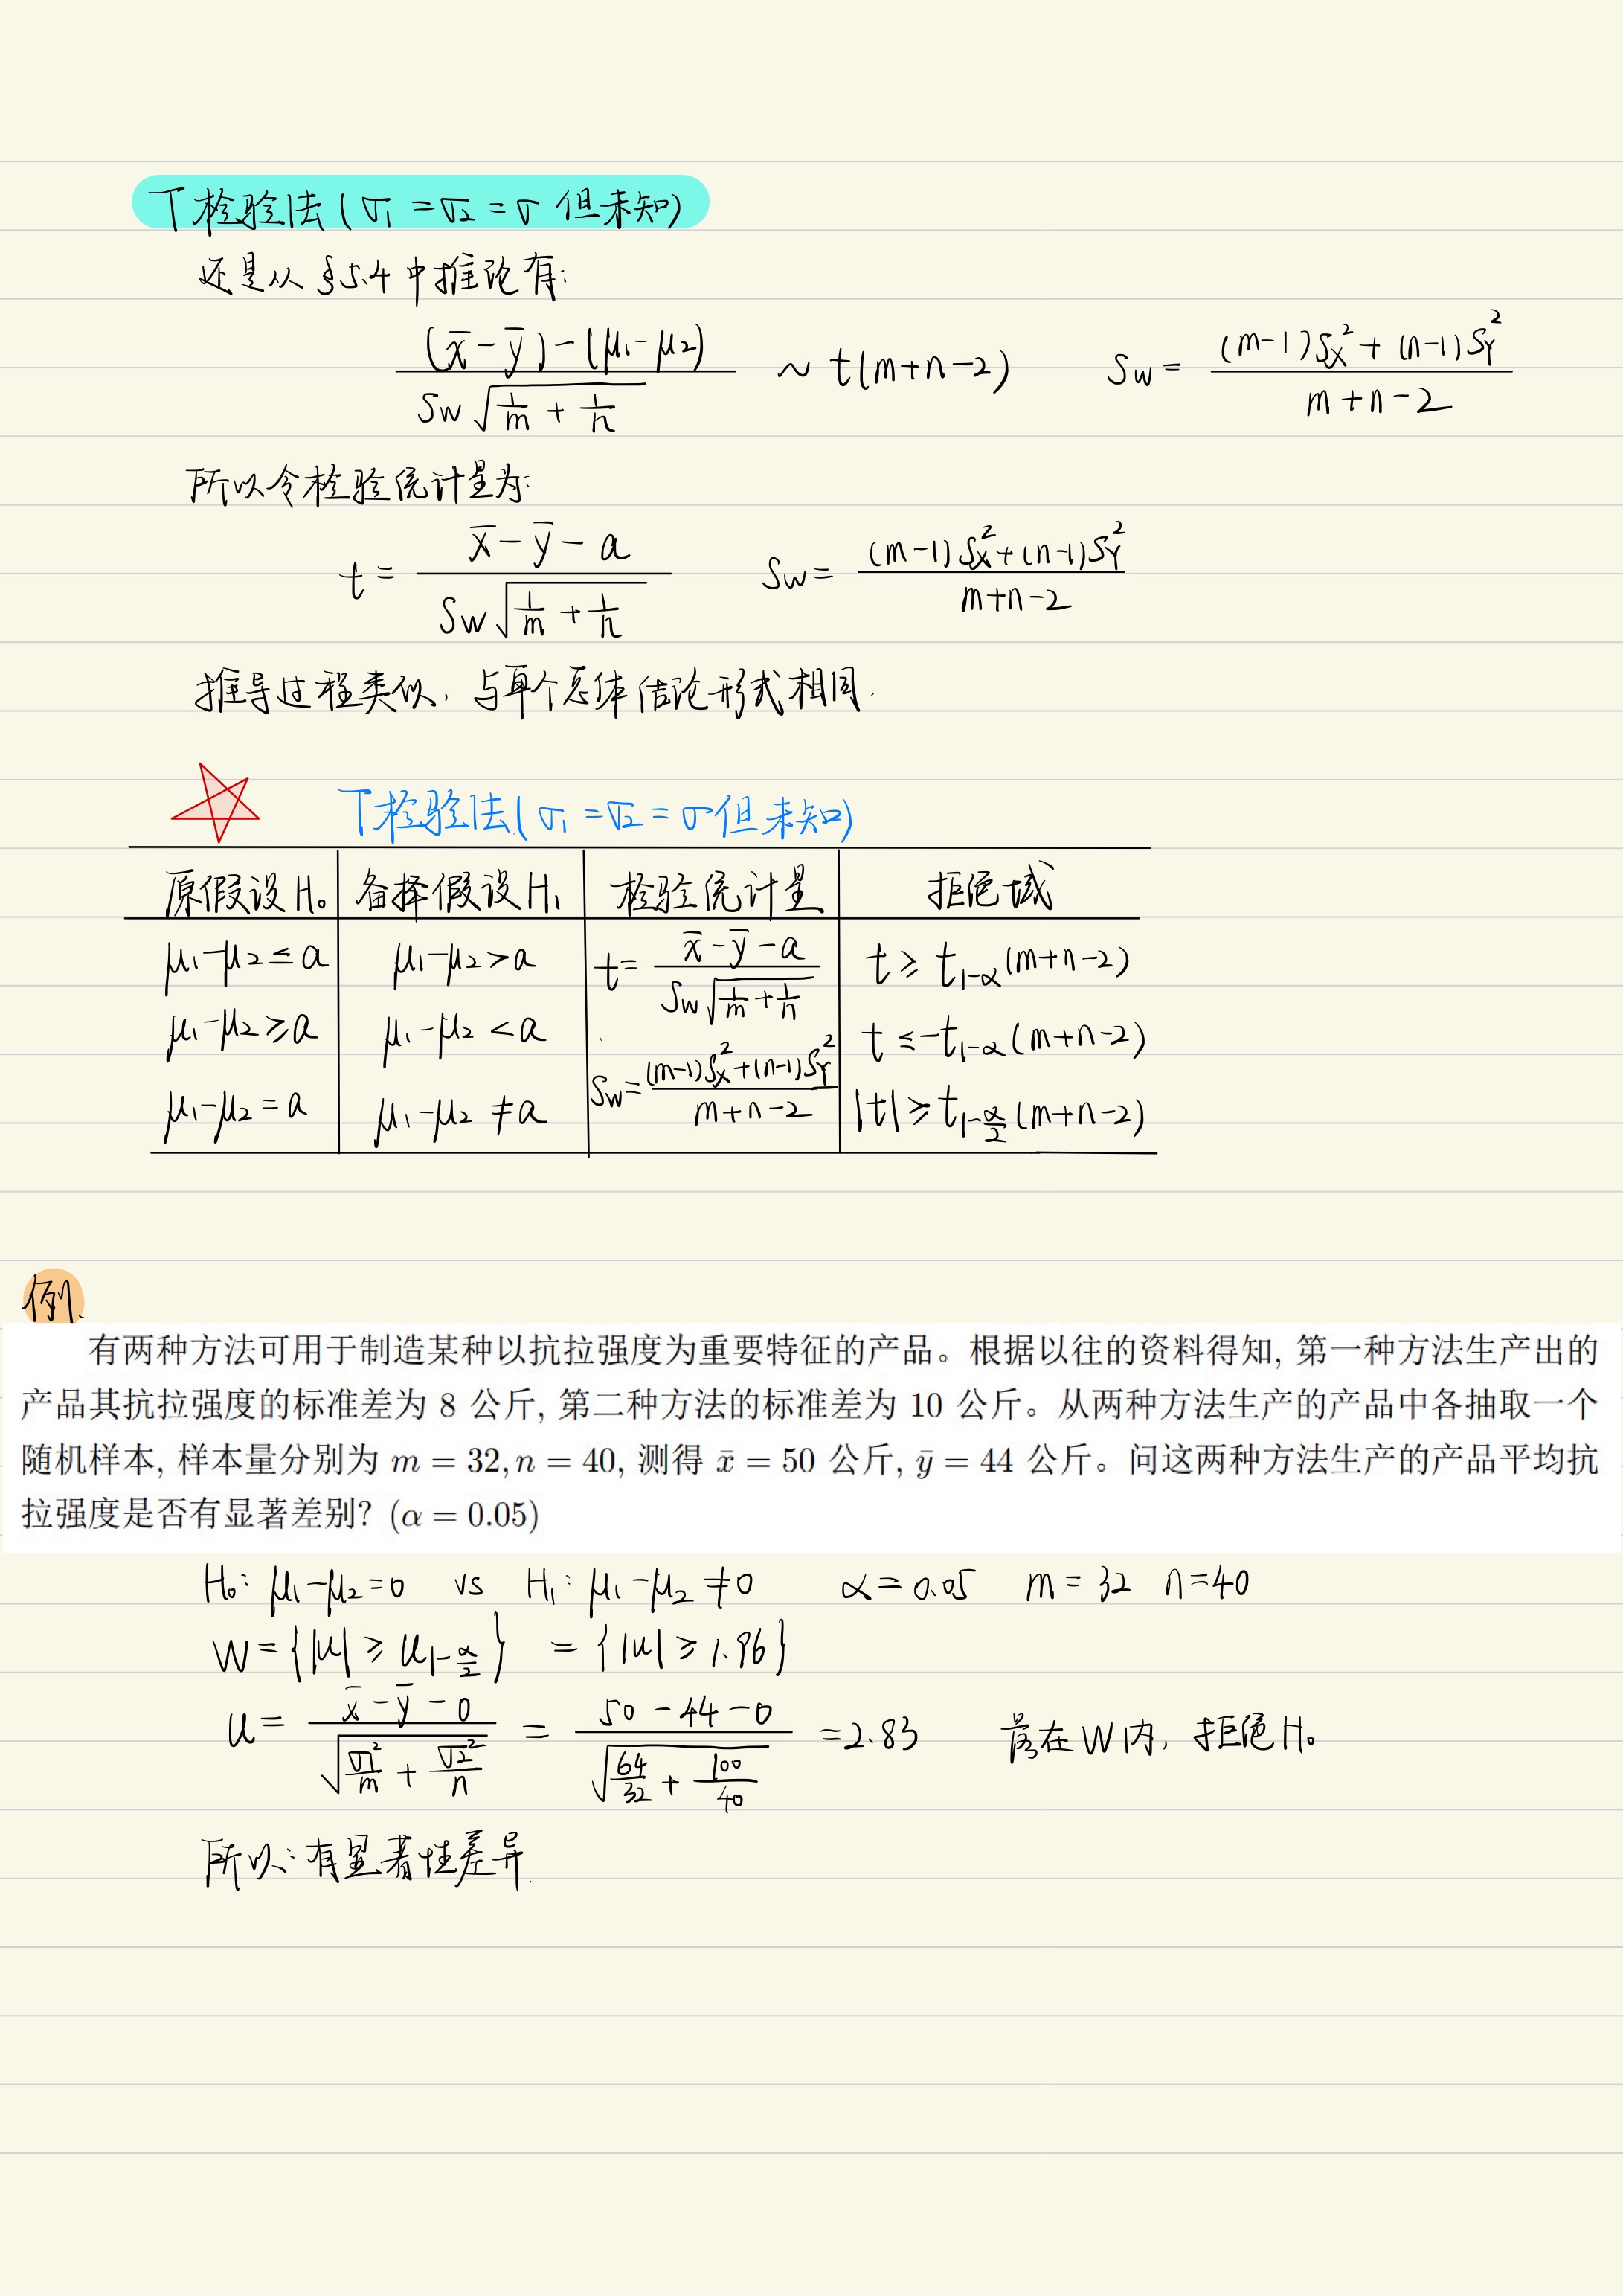 T检验法(σ₁=σ₂=σ 但未知)
还是从 §5.4 中推论有:
((x̄-ȳ)-(μ₁-μ₂))/(Sw√(1/m+1/n)) ~ t(m+n-2)  Sw = ((m-1)Sx²+(n-1)SY²)/(m+n-2)
所以令检验统计量为:
t = (x̄-ȳ-a)/(Sw√(1/m+1/n))  Sw = ((m-1)Sx²+(n-1)SY²)/(m+n-2)
推导过程类似, 与单个总体结论形式相同.
T检验法(σ₁=σ₂=σ但未知)
原假设H₀ 备择假设H₁ 检验统计量 拒绝域
μ₁-μ₂≤a  μ₁-μ₂>a  t=(x̄-ȳ-a)/(Sw√(1/m+1/n))  t≥t_{1-α}(m+n-2)
μ₁-μ₂≥a  μ₁-μ₂<a  t≤-t_{1-α}(m+n-2)
μ₁-μ₂=a  μ₁-μ₂≠a  Sw=((m-1)Sx²+(n-1)SY²)/(m+n-2)  |t|≥t_{1-α/2}(m+n-2)
例.
有两种方法可用于制造某种以抗拉强度为重要特征的产品。根据以往的资料得知, 第一种方法生产出的
产品其抗拉强度的标准差为 8 公斤, 第二种方法的标准差为 10 公斤。从两种方法生产的产品中各抽取一个
随机样本, 样本量分别为 m = 32, n = 40, 测得 x̄ = 50 公斤, ȳ = 44 公斤。问这两种方法生产的产品平均抗
拉强度是否有显著差别? (α = 0.05)
H₀: μ₁-μ₂=0 vs H₁: μ₁-μ₂≠0  α=0.05  m=32 n=40
W={|u|≥u_{1-α/2}} = {|u|≥1.96}
u = (x̄-ȳ-0)/√(σ₁²/m+σ₂²/n) = (50-44-0)/√(64/32+100/40) =2.83  落在W内, 拒绝H₀
所以: 有显著性差异.